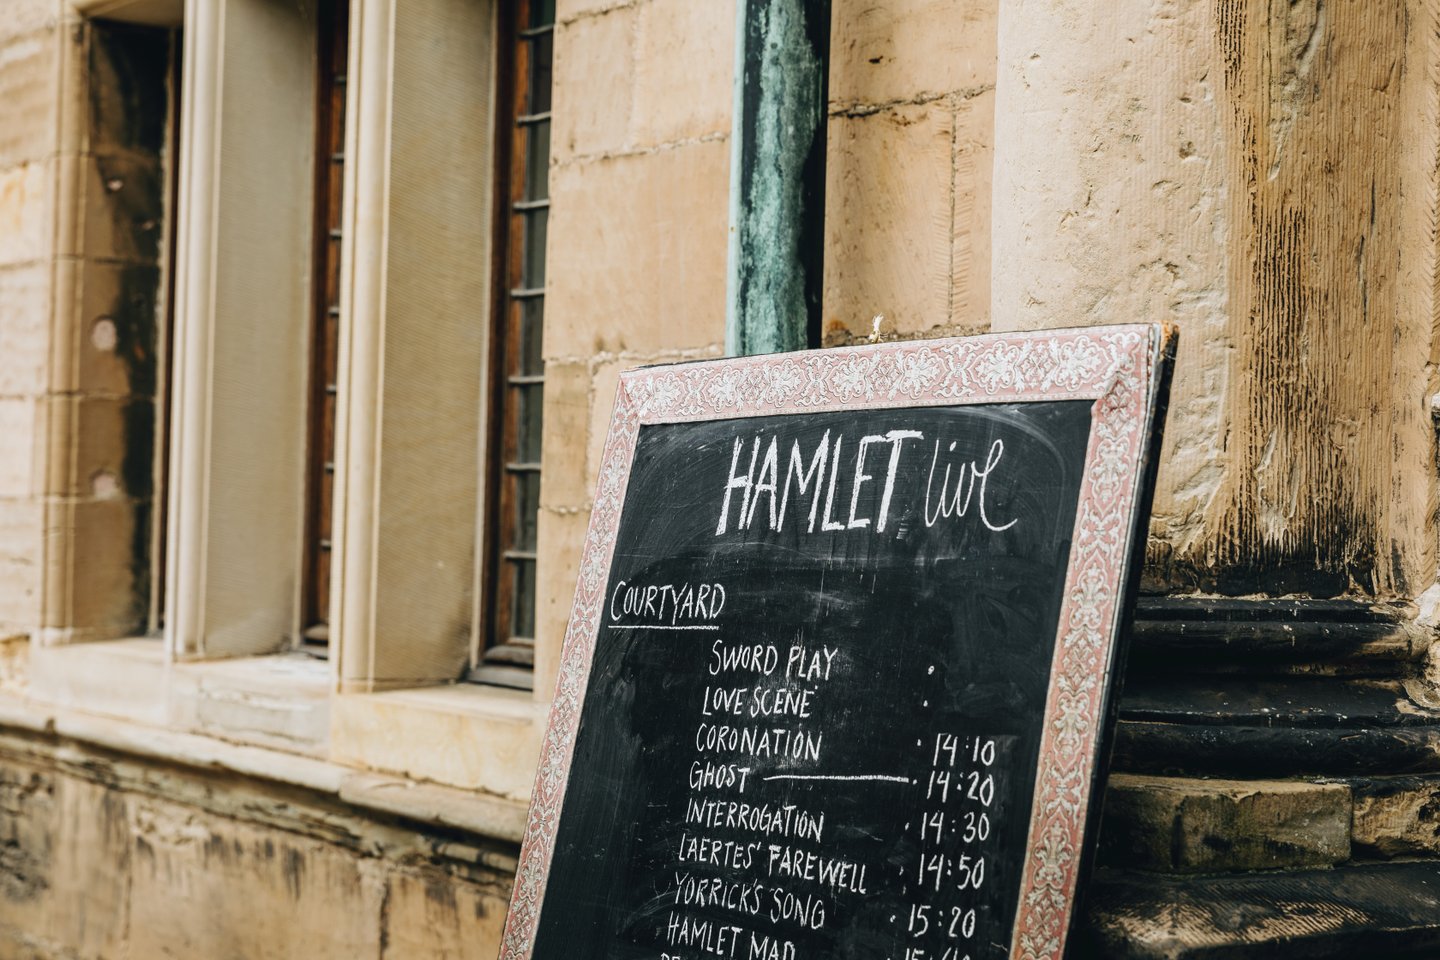 HAMLET live
COURTYARD
SWORD PLAY
LOVE SCENE
CORONATION 14:10
GHOST 14:20
INTERROGATION 14:30
LAERTES' FAREWELL 14:50
YORRICK'S SONG 15:20
HAMLET MAD